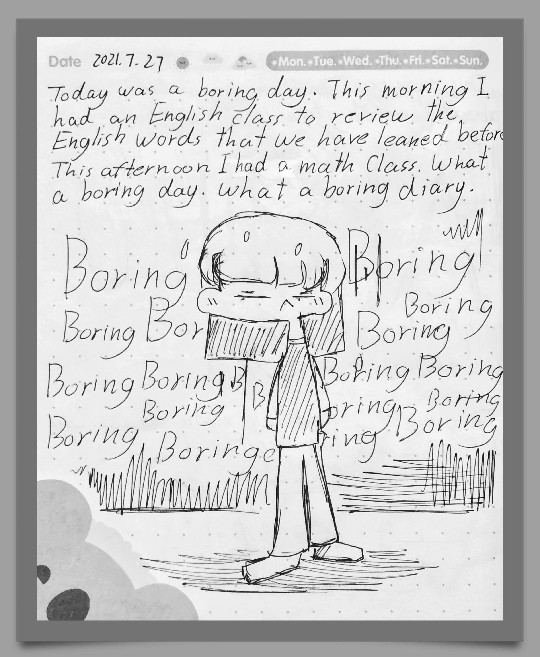 Date 2021.7.27 Mon. Tue. Wed. Thu. Fri. Sat. Sun.
Today was a boring day. This morning I
had an English class to review the
English words that we have leaned before
This afternoon I had a math Class. What
a boring day. What a boring diary.
Boring Boring
Boring
Boring Bor Boring
Boring Boring B Boring Boring
Boring B oring Boring
Boring Boringe ring Boring